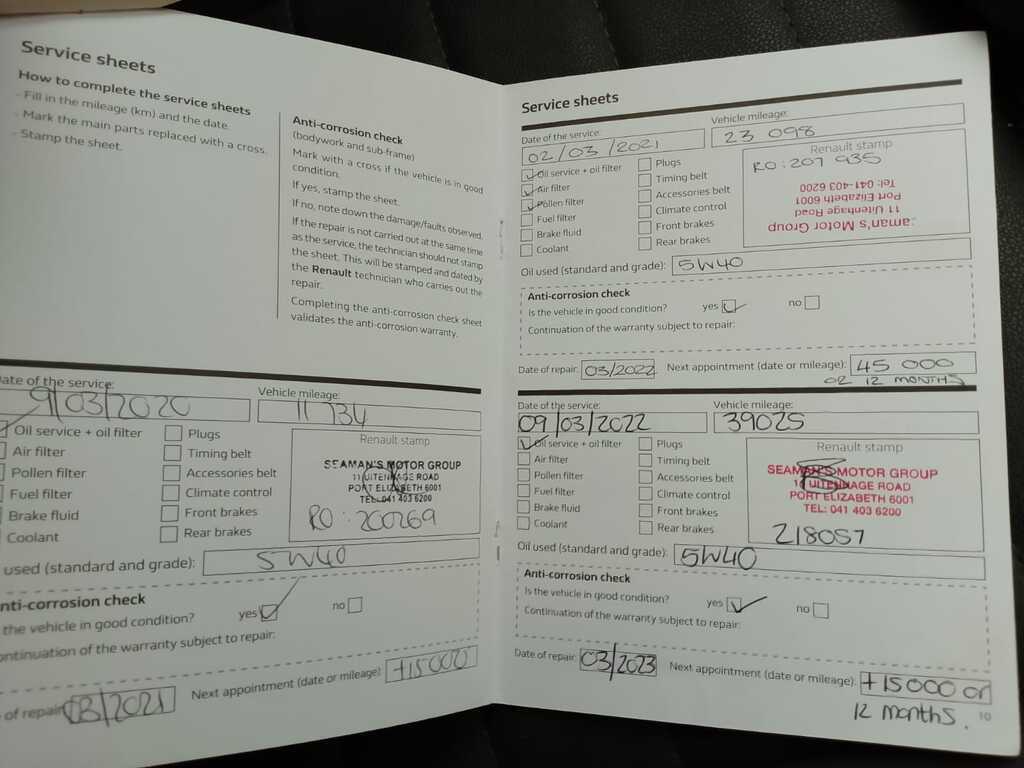 Service sheets
How to complete the service sheets
- Fill in the mileage (km) and the date.
- Mark the main parts replaced with a cross.
- Stamp the sheet.
Anti-corrosion check
(bodywork and sub-frame)
Mark with a cross if the vehicle is in good
condition.
If yes, stamp the sheet.
If no, note down the damage/faults observed.
If the repair is not carried out at the same time
as the service, the technician should not stamp
the sheet. This will be stamped and dated by
the Renault technician who carries out the
repair.
Completing the anti-corrosion check sheet
validates the anti-corrosion warranty.
Date of the service:
9/03/2020
Vehicle mileage:
11 734
Oil service + oil filter
Air filter
Pollen filter
Fuel filter
Brake fluid
Coolant
Plugs
Timing belt
Accessories belt
Climate control
Front brakes
Rear brakes
Renault stamp
SEAMAN'S MOTOR GROUP
11 UITENHAGE ROAD
PORT ELIZABETH 6001
TEL: 041 403 6200
RO: 200269
used (standard and grade): 5W40
nti-corrosion check
the vehicle in good condition? yes no
ontinuation of the warranty subject to repair:
of repair 03/2021 Next appointment (date or mileage) +15000
Service sheets
Date of the service:
02/03/2021
Vehicle mileage:
23 098
Oil service + oil filter
Air filter
Pollen filter
Fuel filter
Brake fluid
Coolant
Plugs
Timing belt
Accessories belt
Climate control
Front brakes
Rear brakes
Renault stamp
RO: 207 935
Tel: 041-403 6200
Port Elizabeth 6001
11 Uitenhage Road
aman's Motor Group
Oil used (standard and grade): 5W40
Anti-corrosion check
Is the vehicle in good condition? yes no
Continuation of the warranty subject to repair:
Date of repair: 03/2022 Next appointment (date or mileage): 45 000
OR 12 MONTHS
Date of the service:
09/03/2022
Vehicle mileage:
39025
Oil service + oil filter
Air filter
Pollen filter
Fuel filter
Brake fluid
Coolant
Plugs
Timing belt
Accessories belt
Climate control
Front brakes
Rear brakes
Renault stamp
SEAMAN'S MOTOR GROUP
11 UITENHAGE ROAD
PORT ELIZABETH 6001
TEL: 041 403 6200
218057
Oil used (standard and grade): 5W40
Anti-corrosion check
Is the vehicle in good condition? yes no
Continuation of the warranty subject to repair:
Date of repair: 03/2023 Next appointment (date or mileage): +15000 or
12 months.
10